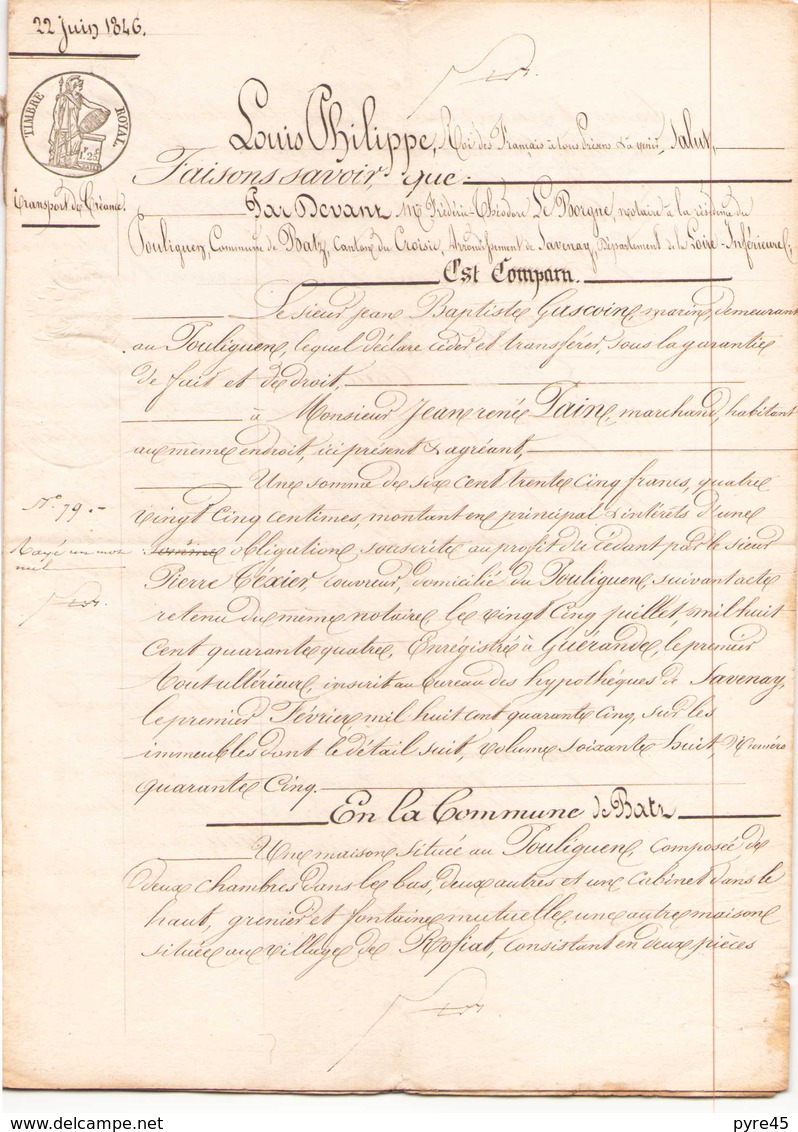 22 Juin 1846.
TIMBRE ROYAL
1F.25c
Louis Philippe, Roi des Français à tous présens & à venir, Salut,
Faisons savoir, que
Transport de Créance.
Par Devant Me Frédéric-Théodore Le Borgne, notaire à la résidence du
Pouliguen, Commune de Batz, Canton du Croisic, Arrondissement de Savenay, Département de la Loire-Inférieure;
Est Comparu.
Le sieur Jean Baptiste Gascoin, marin, demeurant
au Pouliguen, lequel déclare céder et transférer, sous la garantie
de fait et de droit,
à Monsieur Jean rené Tain, marchand, habitant
au même endroit, ici présent & agréant,
Une somme de six cent trente cinq francs, quatre
vingt cinq centimes, montant en principal & intérêts d'une
obligation souscrite au profit du cédant par le sieur
Pierre Téxier, couvreur, domicilié du Pouliguen, suivant acte
retenu du même notaire, le vingt cinq juillet, mil huit
cent quarante quatre, Enrégistré à Guérande, le premier
Août ultérieur, inscrit au bureau des hypothéques de Savenay,
le premier Février mil huit cent quarante cinq, sur les
immeubles dont le détail suit, volume soixante huit, Numéro
quarante Cinq.
No 79.-
Rayé un mot
nul
En la Commune de Batz
Une maison située au Pouliguen, composée de
deux chambres dans le bas, deux autres et un cabinet dans le
haut, grenier et fontaine mutuelle, une autre maison
située au village de Rofiat, consistant en deux pièces
pyre45